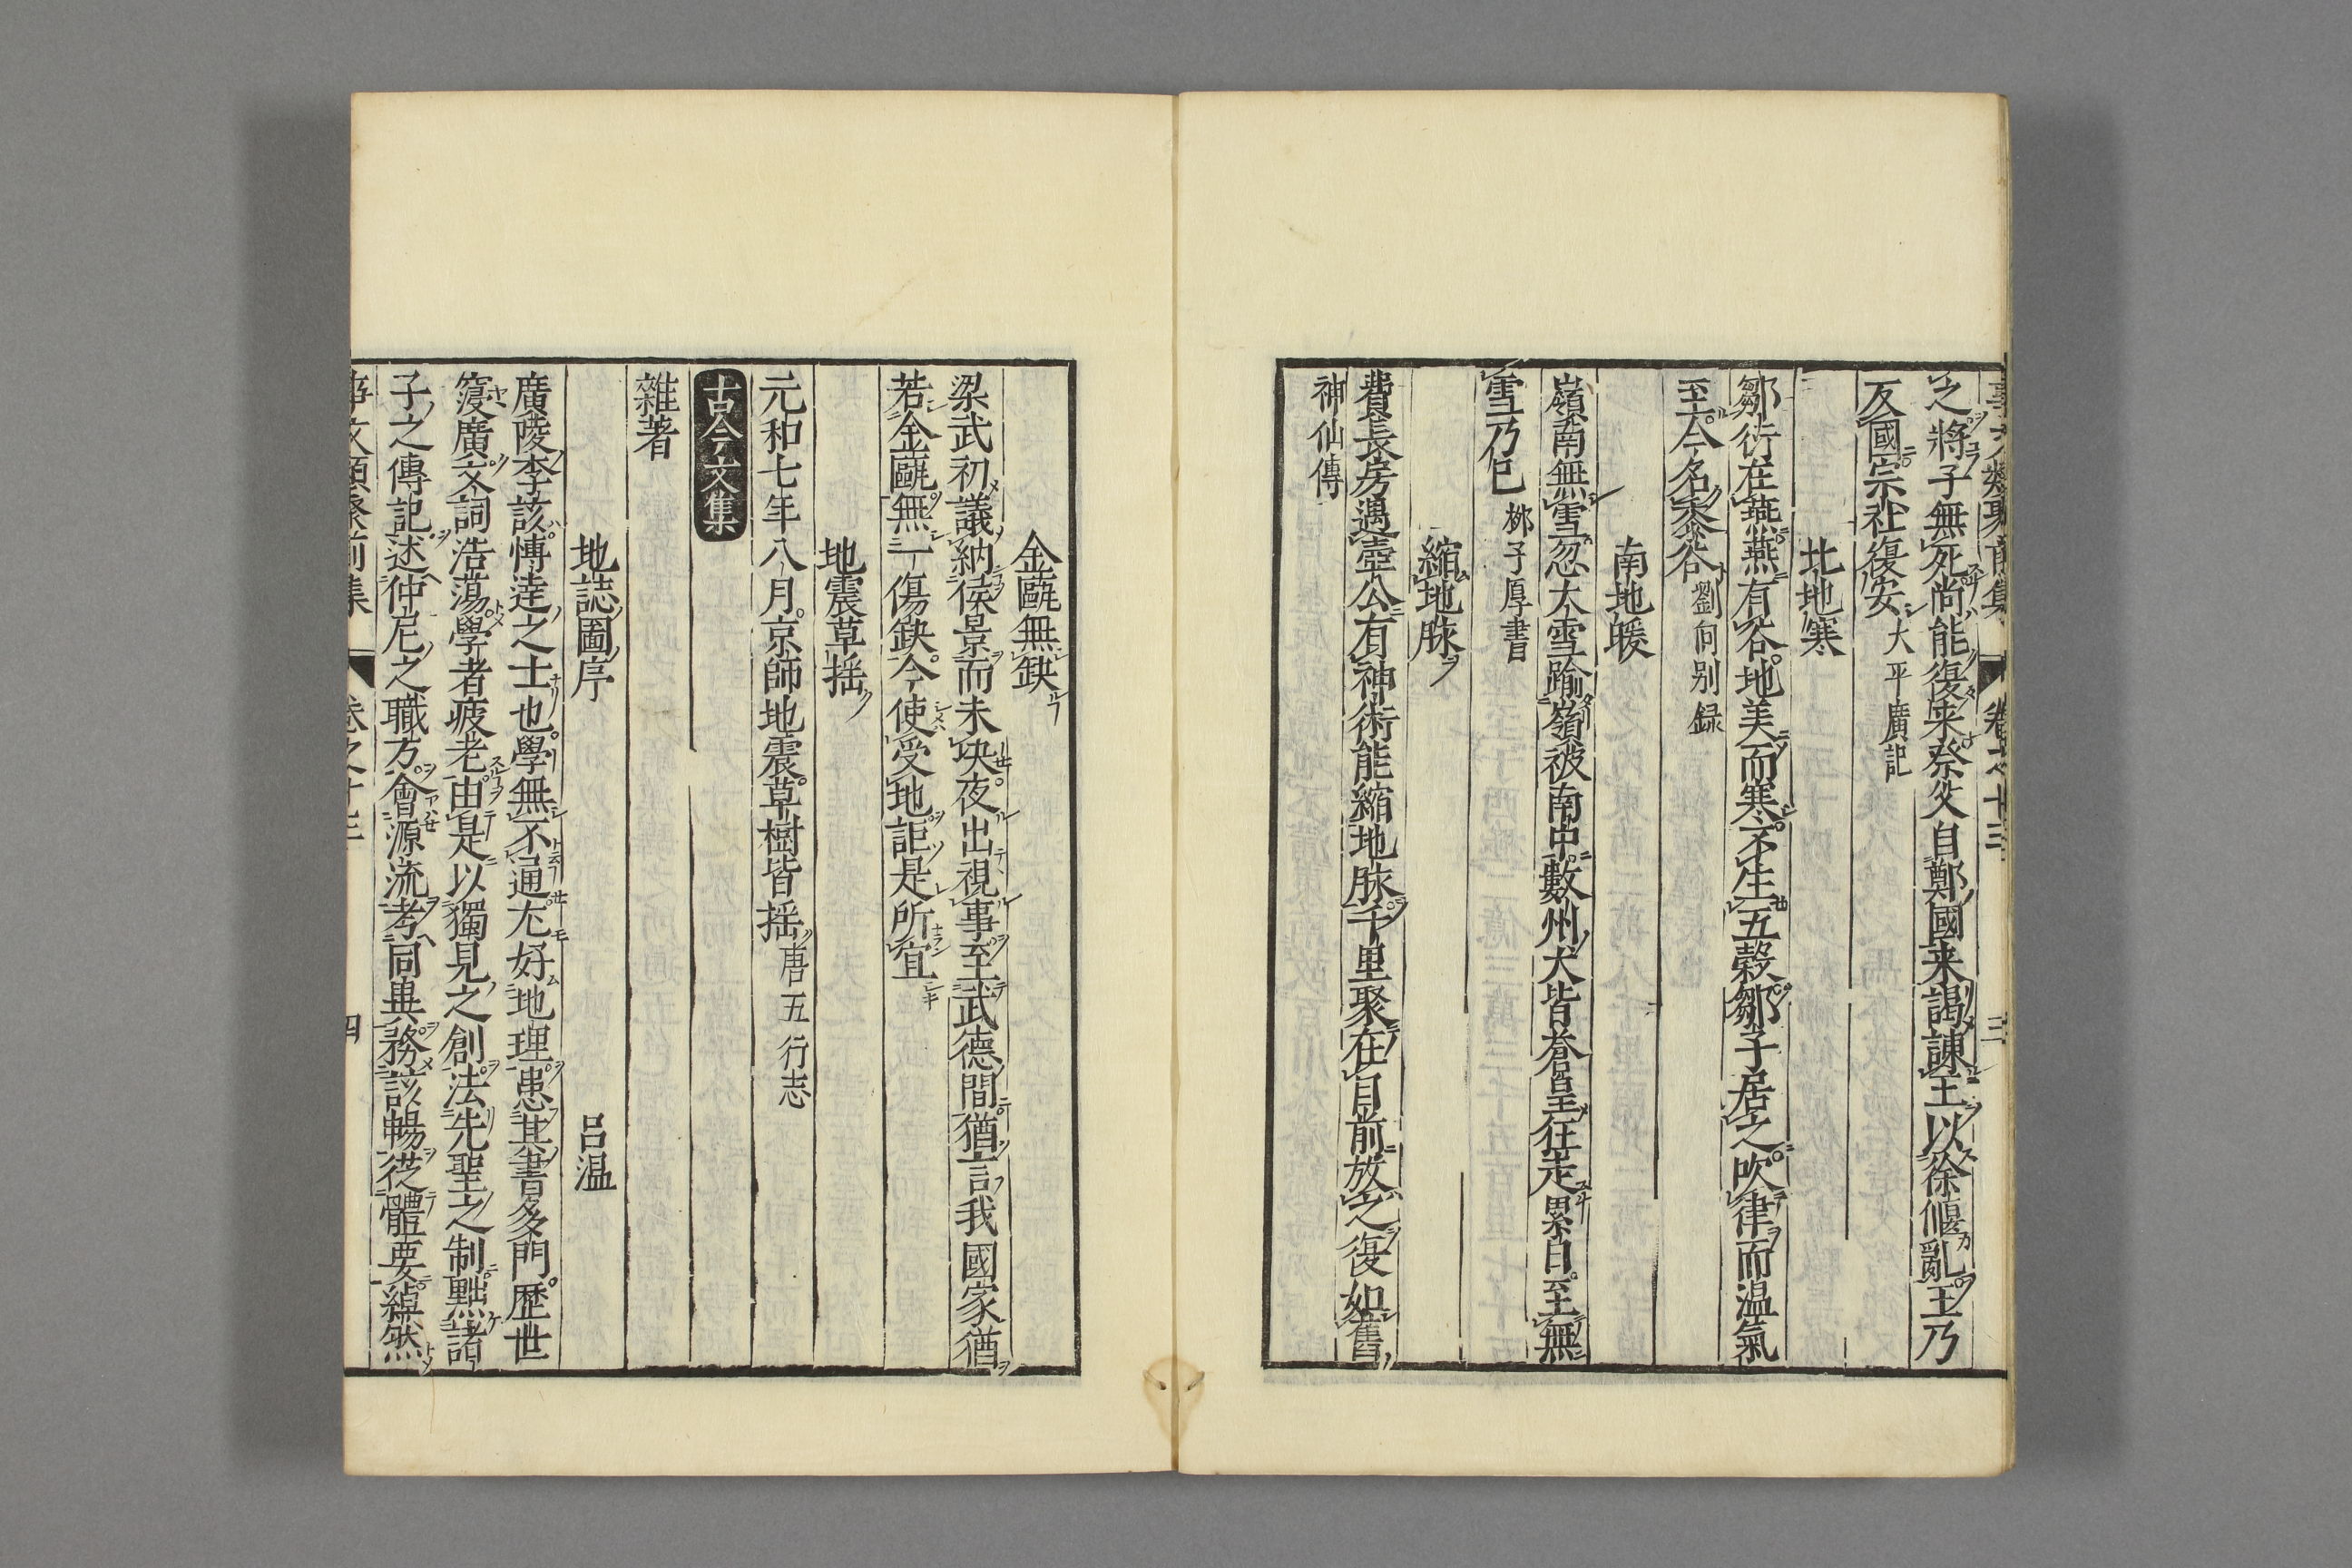 之將子無死尚能復来癸父自鄭國来謁諌王以徐偃亂王乃
反國宗社復安大平廣記
北地寒
鄒衍在燕燕有谷地美而寒不生五榖鄒子居之吹律而温氣
至今名黍谷劉向别録
南地暖
嶺南無雪忽大雪踰嶺被南中數州犬皆蒼皇狂走累日至無
雪乃已栁子厚書
縮地脉
費長房遇壺公有神術能縮地脉千里聚在目前放之復如舊
神仙傳
金甌無缺
梁武初議納侯景而未决夜出視事至武德間猶言我國家猶
若金甌無一傷缺今使受地詎是所宜
地震草揺
元和七年八月京師地震草樹皆揺唐五行志
古今文集
雜著
地誌圖序 吕温
廣陵李該博逹之士也學無不通尤好地理患其書多門歷世
寖廣文詞浩蕩學者疲老由是以獨見之創法先聖之制黜諸
子之傳記述仲尼之職方會源流考同異務該暢從體要綽然
事文類聚前集 卷之十三 四